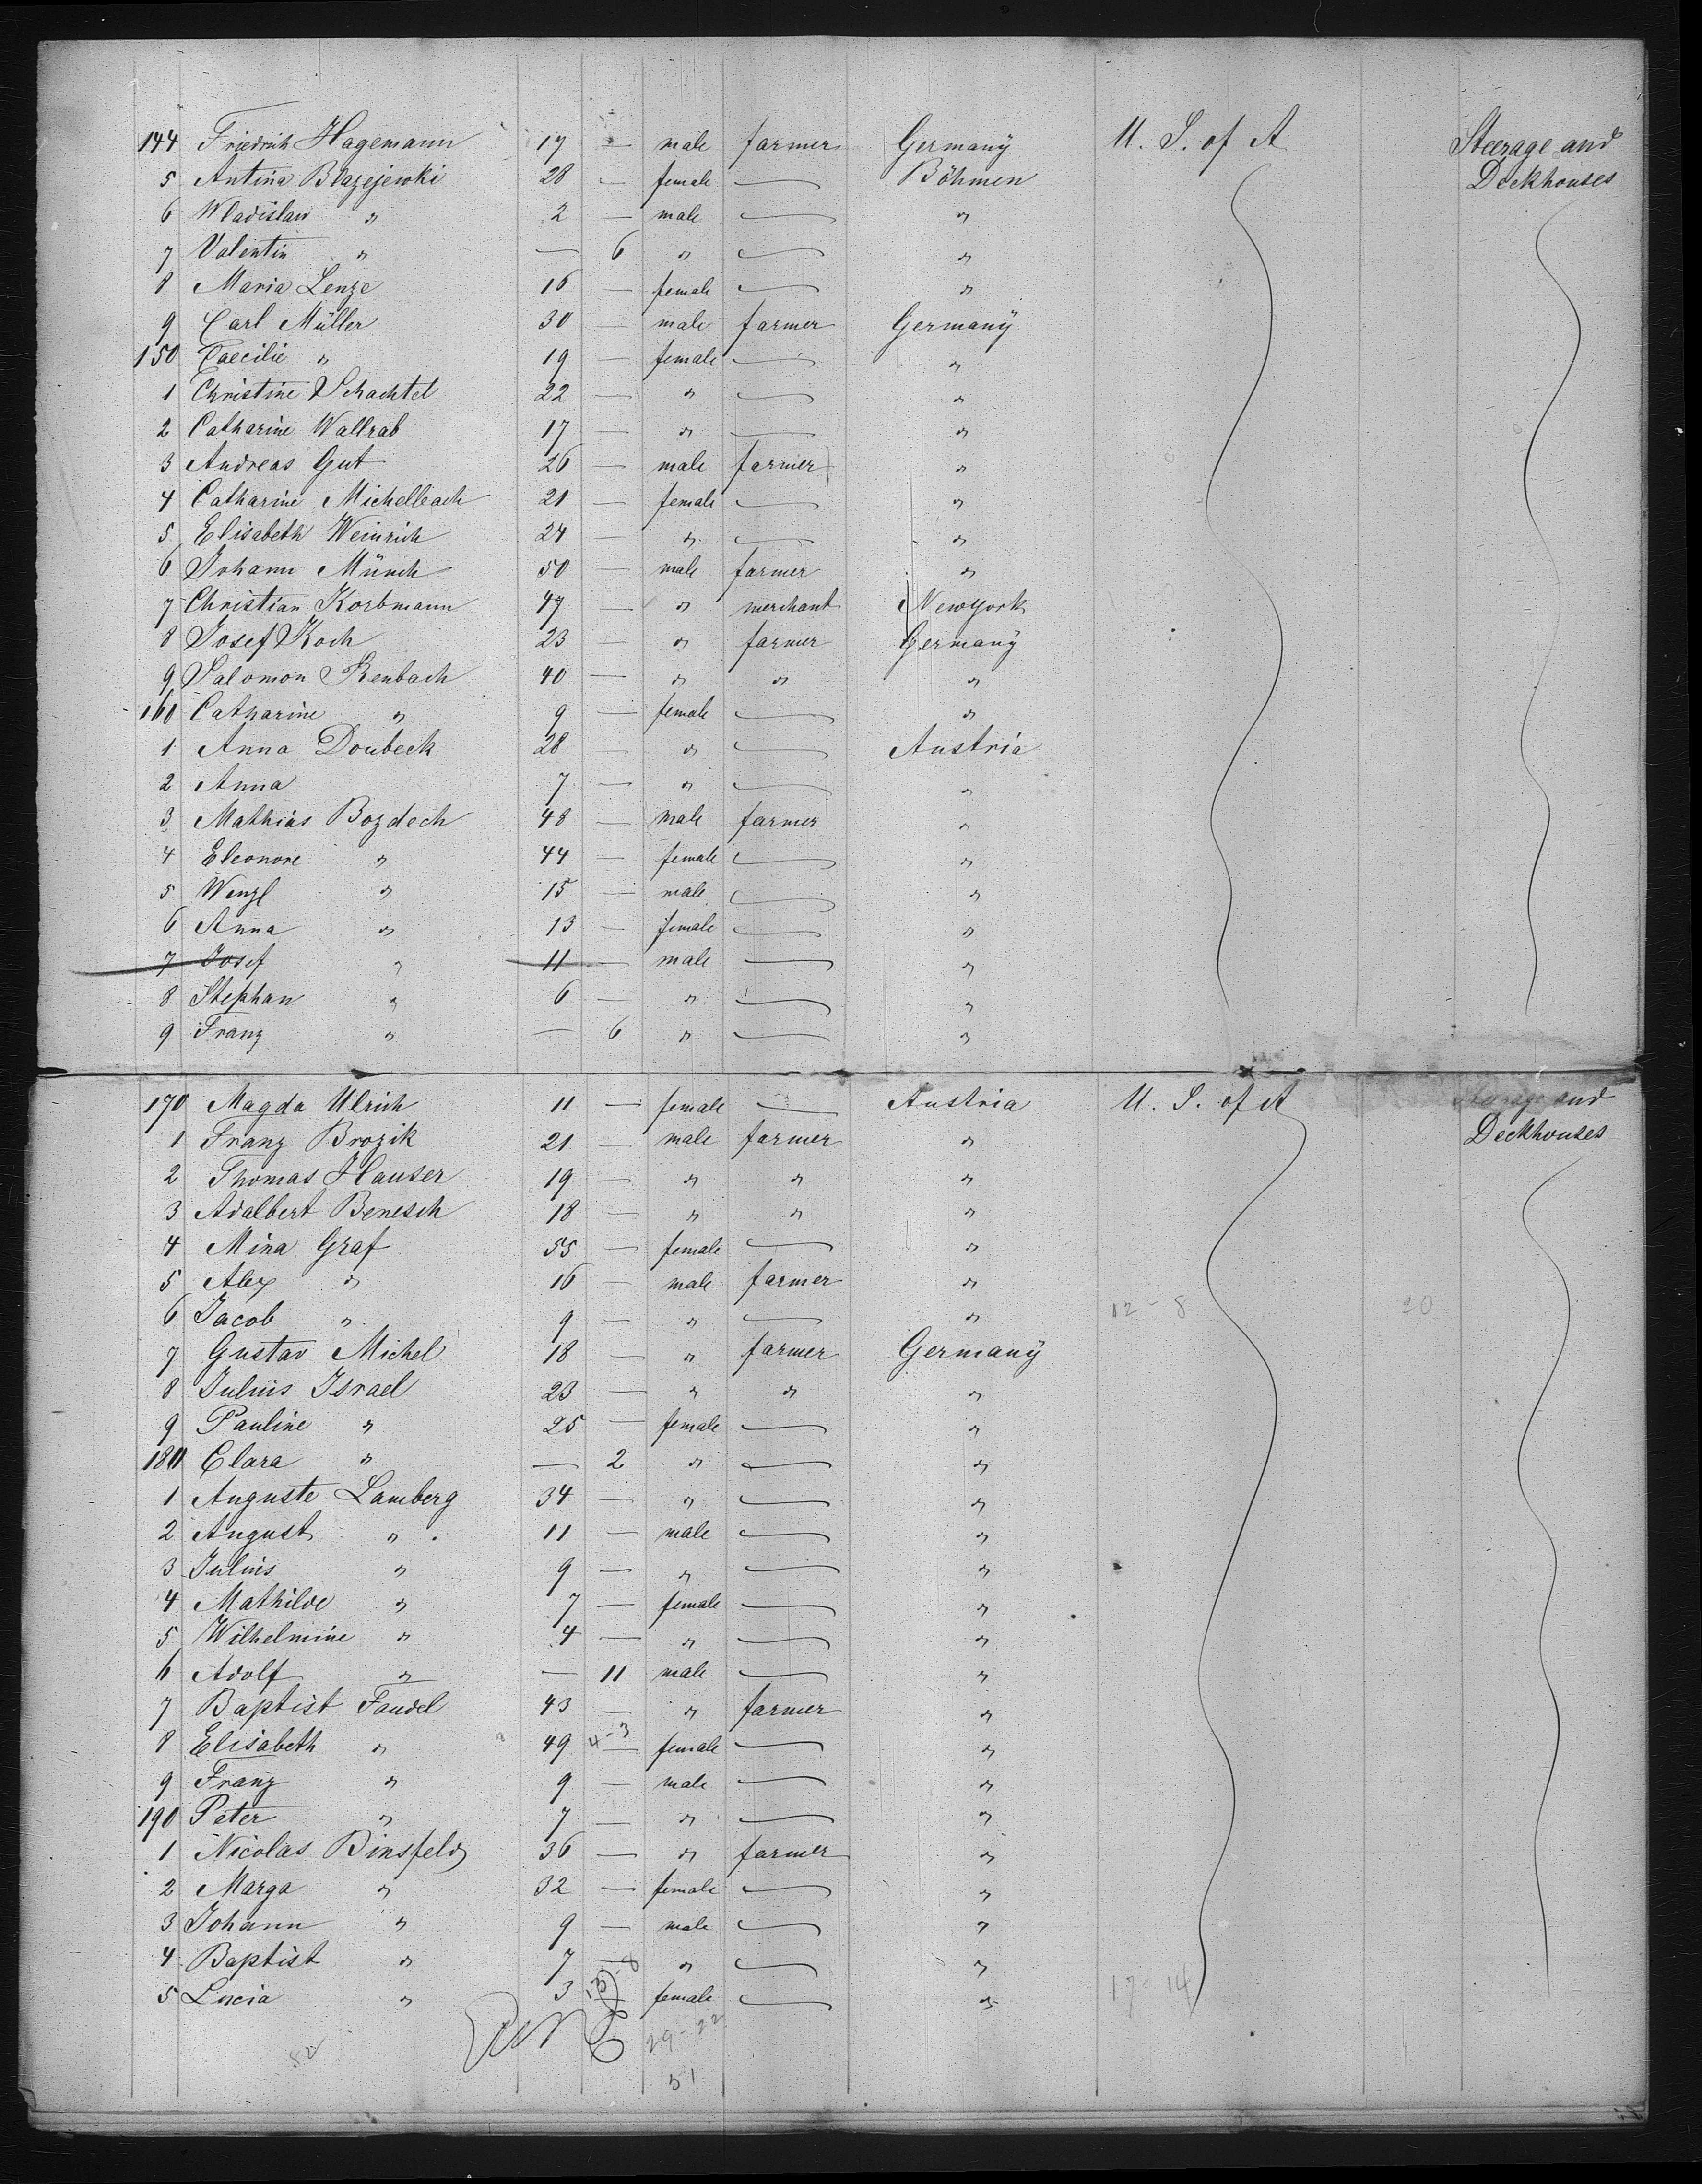 144 Friedrich Hagemann 17 — male farmer Germany U. S. of A Steerage and
5 Antina Blazejewki 28 — female — Böhmen Deckhouses
6 Wladislaw " 2 — male — "
7 Valentin " — 6 " — "
8 Maria Lenze 16 — female — "
9 Carl Müller 30 — male farmer Germany
150 Caecilie " 19 — female — "
1 Christine Schachtel 22 — " — "
2 Catharine Wallrab 17 — " — "
3 Andreas Gut 26 — male farmer "
4 Catharine Michelbach 21 — female — "
5 Elisabeth Weinrich 24 — " — "
6 Johann Münch 50 — male farmer "
7 Christian Korbmann 47 — " merchant Newyork
8 Josef Koch 23 — " farmer Germany
9 Salomon Renbach 40 — " " "
160 Catharine " 9 — female — "
1 Anna Doubeck 28 — " — Austria
2 Anna 7 — " — "
3 Mathias Bozdech 48 — male farmer "
4 Eleonore " 44 — female — "
5 Wenzl " 15 — male — "
6 Anna " 13 — female — "
7 Josef " 11 — male — "
8 Stephan " 6 — " — "
9 Franz " — 6 " — "
170 Magda Ulrich 11 — female — Austria U. S. of A Steerage and
1 Franz Brozik 21 — male farmer " Deckhouses
2 Thomas Hauser 19 — " " "
3 Adalbert Benesch 18 — " " "
4 Mina Graf 55 — female — "
5 Alex " 16 — male farmer "
6 Jacob " 9 — " — " 12 - 8 20
7 Gustav Michel 18 — " farmer Germany
8 Julius Israel 23 — " " "
9 Pauline " 25 — female — "
180 Clara " — 2 " — "
1 Auguste Lamberg 34 — " — "
2 August " 11 — male — "
3 Julius " 9 — " — "
4 Mathilde " 7 — female — "
5 Wilhelmine " 4 — " — "
6 Adolf " — 11 male — "
7 Baptist Faudel 43 — " farmer "
8 Elisabeth " 49 4-3 — female — "
9 Franz " 9 — male — "
190 Peter " 7 — " — "
1 Nicolas Binsfeld 36 — " farmer "
2 Marga " 32 — female — "
3 Johann " 9 — male — "
4 Baptist " 7 — " — "
5 Lucia " 3 female — " 17 - 14
29 - 22
51